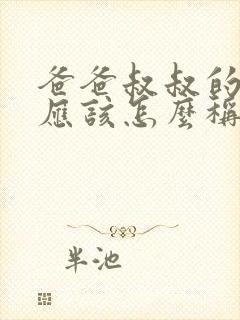 爸爸叔叔的
應該怎麼稱
半池